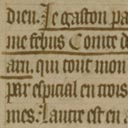 dien. Je gaston pa
me febus Comte d
arn. qui tout mon
par especial en trois
mes. lautre est en